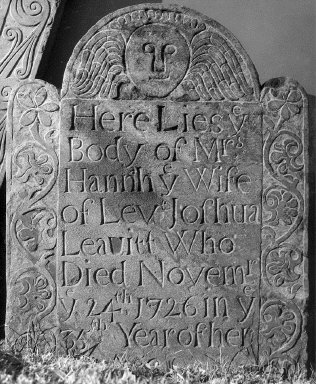 Here Lies yͤ
Body of Mrˢ
Hannͣh yͤ Wife
of Levͭ Joſhua
Leavitt Who
Died Novemʳ
yͤ 24ͭͪ 1726 in yͤ
Year of her